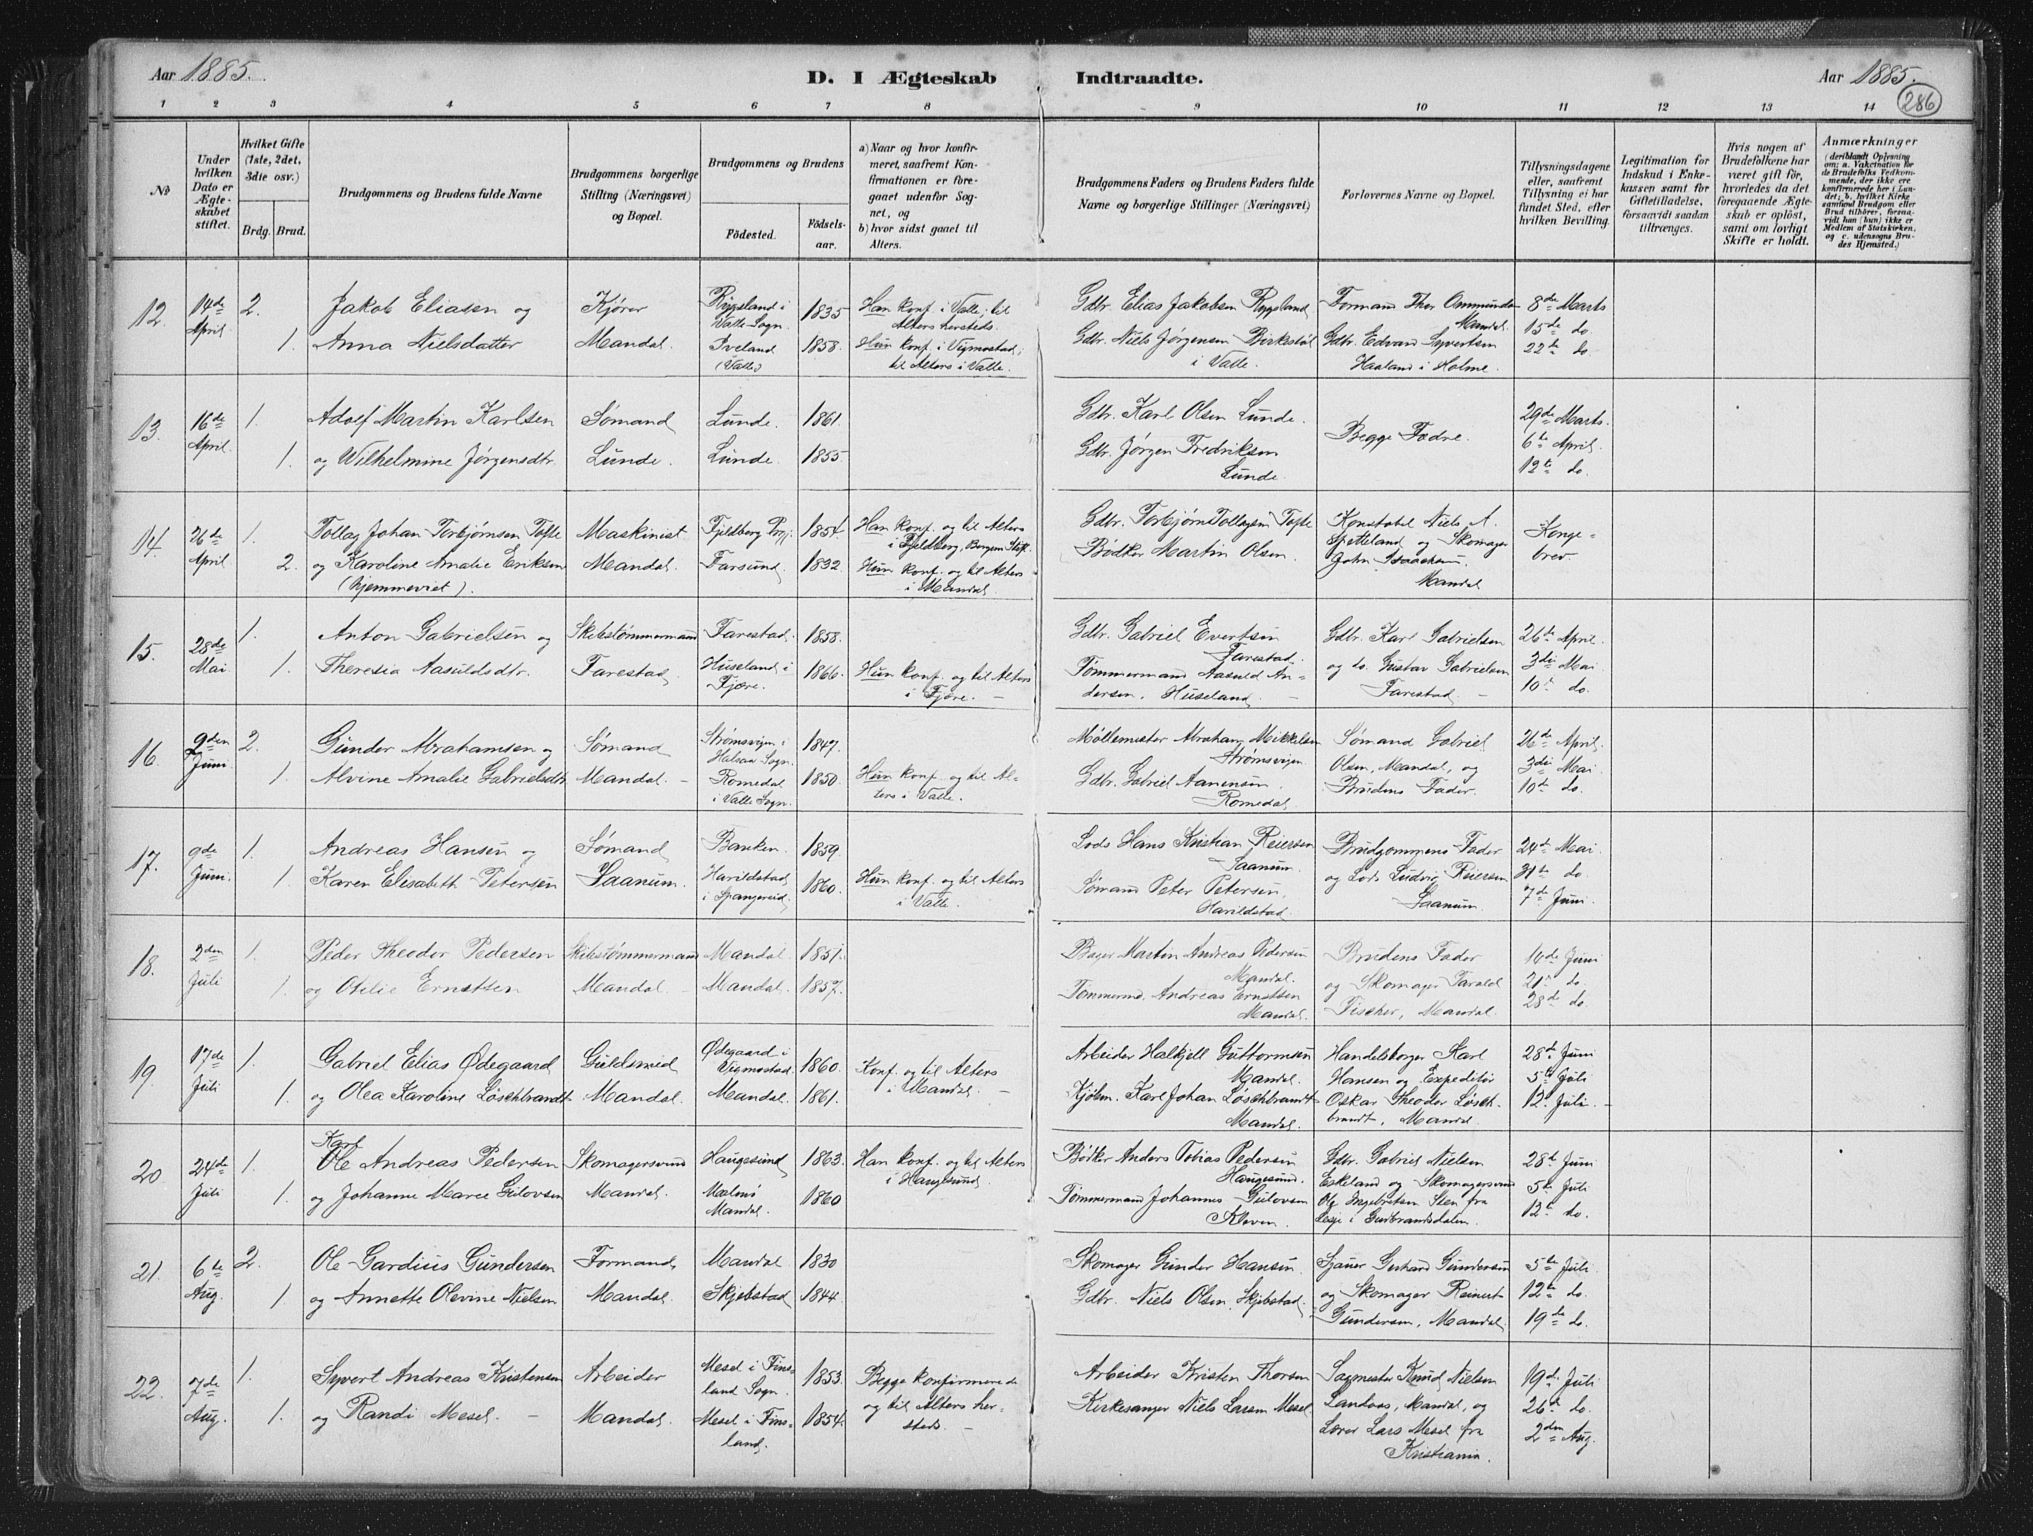 Aar 1885.
D. I Ægteskab Indtraadte.
Aar 1885.
286
1 2 3 4 5 6 7 8 9 10 11 12 13 14
No
Under hvilken Dato er Ægteskabet stiftet.
Hvilket Gifte (1ste, 2det, 3die osv.)
Brdg. Brud.
Brudgommens og Brudens fulde Navne
Brudgommens borgerlige Stilling (Næringsvei) og Bopæl.
Brudgommens og Brudens
Födested. Födselsaar.
a) Naar og hvor konfirmeret, saafremt Konfirmationen er foregaaet udenfor Sognet, og
b) hvor sidst gaaet til Alters.
Brudgommens Faders og Brudens Faders fulde Navne og borgerlige Stillinger (Næringsvei)
Forlovernes Navne og Bopæl.
Tillysningsdagene eller, saafremt Tillysning ei har fundet Sted, efter hvilken Bevilling.
Legitimation for Indskud i Enkekassen samt for Giftetilladelse, forsaavidt saadan tiltrænges.
Hvis nogen af Brudefolkene har været gift för, hvorledes da det foregaaende Ægteskab er oplöst, samt om lovligt Skifte er holdt.
Anmærkninger
(deriblandt Oplysning om: a. Vakcination for de Brudefolks Vedkommende, der ikke ere konfirmerede her i Landet; b. hvilket Kirkesamfund Brudgom eller Brud tilhörer, forsaavidt han (hun) ikke er Medlem af Statskirken, og c. udensogns Brudes Hjemsted.)
12. 14de April 2. Jakob Eliasen og Kjører Rygsland i Valle Sogn. 1835 Han konf. i Valle, til Alters hersteds. Gdbr. Elias Jakobsen Rygsland Formand Thor Ommundsen Mandal 8de Marts
1. Anna Nielsdatter Mandal. Iveland (Valle) 1858. Hun konf. i Vigmostad, til Alters i Valle. Gdbr. Niels Jørgensen Birkestøl i Valle. Gdbr. Edvard Syvertsen Haaland i Holme. 15de do. 22de do.
13. 16de April. 1. Adolf Martin Karlsen Sømand Lunde. 1861. Gdbr. Karl Olsen Lunde. Begge Fædre. 29de Marts.
1. og Wilhelmine Jørgensdtr. Lunde. Lunde. 1855 Gdbr. Jørgen Fredriksen Lunde. 6te April. 12te do.
14. 26de April 1. Tollag Johan Torbjørnsen Tofte Maskinist Fjeldberg Prgj. 1854. Han konf. og til Alters i Fjeldberg, Bergens Stift. Gdbr. Torbjørn Tollagsen Tofte Konstabel Niels A. Konge-
2. og Karoline Amalie Eriksen (hjemmeviet). Mandal. Farsund. 1832. Hun konf. og til Alters i Mandal. Bødker Martin Olsen. og Skomager John Isaachsen. Mandal brev
15. 28de Mai 1. Anton Gabrielsen og Skibstømmermand Farestad. 1858. Gdbr. Gabriel Evertsen Farestad. Gdbr. Karl Gabrielsen 26de April.
1. Theresia Aasuldsdtr. Farestad. Huseland i Fjære. 1866. Hun konf. og til Alters i Fjære. Tømmermand Aasuld Andersen, Huseland. og do. Gustav Gabrielsen Farestad. 3die Mai 10de do.
16. 9den Juni 2. Gunder Abrahamsen og Sømand Strømsvigen i Halsaa Sogn. 1847. Møllemester Abraham Mikkelsen Strømsvigen Sømand Gabriel 26de April.
1. Alvine Amalie Gabrielsdtr. Mandal. Romedal i Valle Sogn. 1850. Hun konf. og til Alters i Valle. Gdbr. Gabriel Aanensen. Romedal. Olsen, Mandal, og Brudens Fader. 3die Mai 10de do.
17. 9de Juni. 1. Andreas Hansen og Sømand Banken. 1859. Lods Hans Kristian Reiersen Saanum. Brudgommens Fader 24de Mai.
1. Karen Elisabeth Petersen Saanum. Harildstad i Spangereid. 1860. Hun konf. og til Alters i Valle. Sømand Peter Petersen, Harildstad. og Lods Ludvig Reiersen Saanum. 31te do. 7de Juni.
18. 2den Juli 1. Peder Theodor Pedersen Skibstømmermand Mandal. 1851. Bager Martin Andreas Pedersen Mandal. Brudens Fader Juni
1. og Otelie Ernstsen Mandal. Mandal. 1857. Tømmermd. Andreas Ernstsen Mandal. og Skomager Tarald Fischer, Mandal 21de do. 28de do.
19. 17de Juli 1. Gabriel Elias Ødegaard Guldsmed Ødegaard i Vigmostad. 1860. Konf. og til Alters i Mandal. Arbeider Halkjell Guttormsen Mandal. Handelsborger Karl 28de Juni
1. og Olea Karoline Löschbrandt Mandal. Mandal. 1861. Kjøbm. Karl Johan Löschbrandt Mandal. Hansen og Expeditør Oskar Theodor Löschbrandt, Mandal 5te Juli 12te Juli.
20. 24de Juli 1. Karl Ole Andreas Pedersen Skomagersvend Haugesund 1863. Han konf. og til Alters i Haugesund. Bødker Anders Tobias Pedersen Haugesund. Gdbr. Gabriel Nielsen 28de Juni
1. og Johanne Marie Gulovsen Mandal. Malmø Mandal. 1860 Tømmermand Johannes Gulovsen Kleven. Eskeland og Skomagersvend Ole Ingebretsen Sten fra Lesje i Gudbrandsdalen. 5te Juli 12te do.
21. 6te Aug. 2. Ole Gardius Gundersen Formand, Mandal 1830 Skomager Gunder Hansen. Sjauer Gerhard Gundersen 5te Juli
1 og Annette Olevine Nielsen Mandal. Skjebstad 1844. Gdbr. Niels Olsen, Skjebstad. og Skomager Reinert Gundersen, Mandal 12te do. 19de do.
22. 7de Aug. 1. Syvert Andreas Kristensen Arbeider Mesel i Finsland Sogn. 1853. Begge konfirmerede Arbeider Kristen Thorsen Sagmester Knud Nielsen 19de Juli
1. og Randi Mesel. Mandal. Mesel i Finsland. 1854. og til Alters hersteds. Kirkesanger Niels Larsen Mesel. Landaas, Mandal, og Lærer Lars Mesel fra Kristiania. 26de do. 2den Aug.